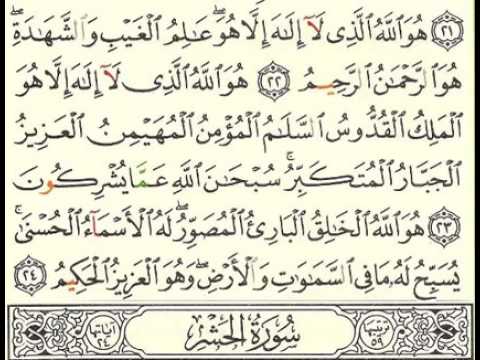 ﴿٢١﴾ هُوَ ٱللَّهُ ٱلَّذِى لَآ إِلَٰهَ إِلَّا هُوَ ۖ عَٰلِمُ ٱلْغَيْبِ وَٱلشَّهَٰدَةِ ۖ
هُوَ ٱلرَّحْمَٰنُ ٱلرَّحِيمُ ﴿٢٢﴾ هُوَ ٱللَّهُ ٱلَّذِى لَآ إِلَٰهَ إِلَّا هُوَ
ٱلْمَلِكُ ٱلْقُدُّوسُ ٱلسَّلَٰمُ ٱلْمُؤْمِنُ ٱلْمُهَيْمِنُ ٱلْعَزِيزُ
ٱلْجَبَّارُ ٱلْمُتَكَبِّرُ ۚ سُبْحَٰنَ ٱللَّهِ عَمَّا يُشْرِكُونَ
﴿٢٣﴾ هُوَ ٱللَّهُ ٱلْخَٰلِقُ ٱلْبَارِئُ ٱلْمُصَوِّرُ ۖ لَهُ ٱلْأَسْمَآءُ ٱلْحُسْنَىٰ ۚ
يُسَبِّحُ لَهُۥ مَا فِى ٱلسَّمَٰوَٰتِ وَٱلْأَرْضِ ۖ وَهُوَ ٱلْعَزِيزُ ٱلْحَكِيمُ ﴿٢٤﴾
ترتيبها ٥٩ سُورَةُ الْحَشْرِ آياتها ٢٤